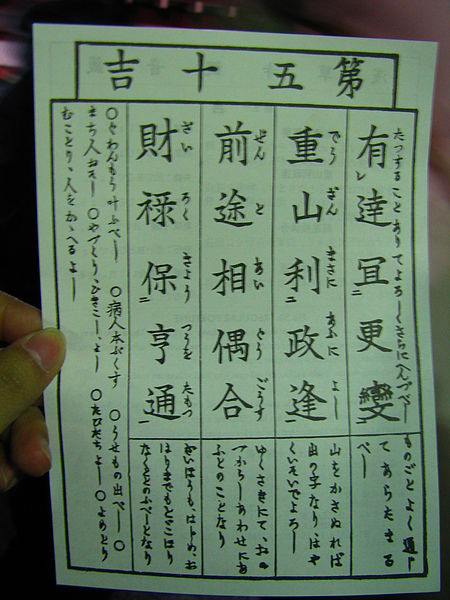 第五十吉
たつすることありてよろしくさらにへんずべし
有レ達冝更變
ものごとよく通じ
てあらたまる
べし
でうざんまさにあふによし
重山利二政逢一
山をかさぬれば
出の字なり、はや
くいそいでよろし
ぜんとあいぐうごうす
前途相偶合
ゆくさきにて、おの
づからしあわせにあ
ふとのことなり
ざいろくきようつうをたもつ
財禄保二亨通一
ざいほうも、はじめ、お
はりまでもとどこほり
なくとのふべしとなり
○ぐわんもう叶ふべし ○病人本ぷくす ○うせもの出べし ○
まち人おそし ○やづくり、ひきこし、よし ○たびだちよし ○よめとり
むことり、人をかゝへるよし